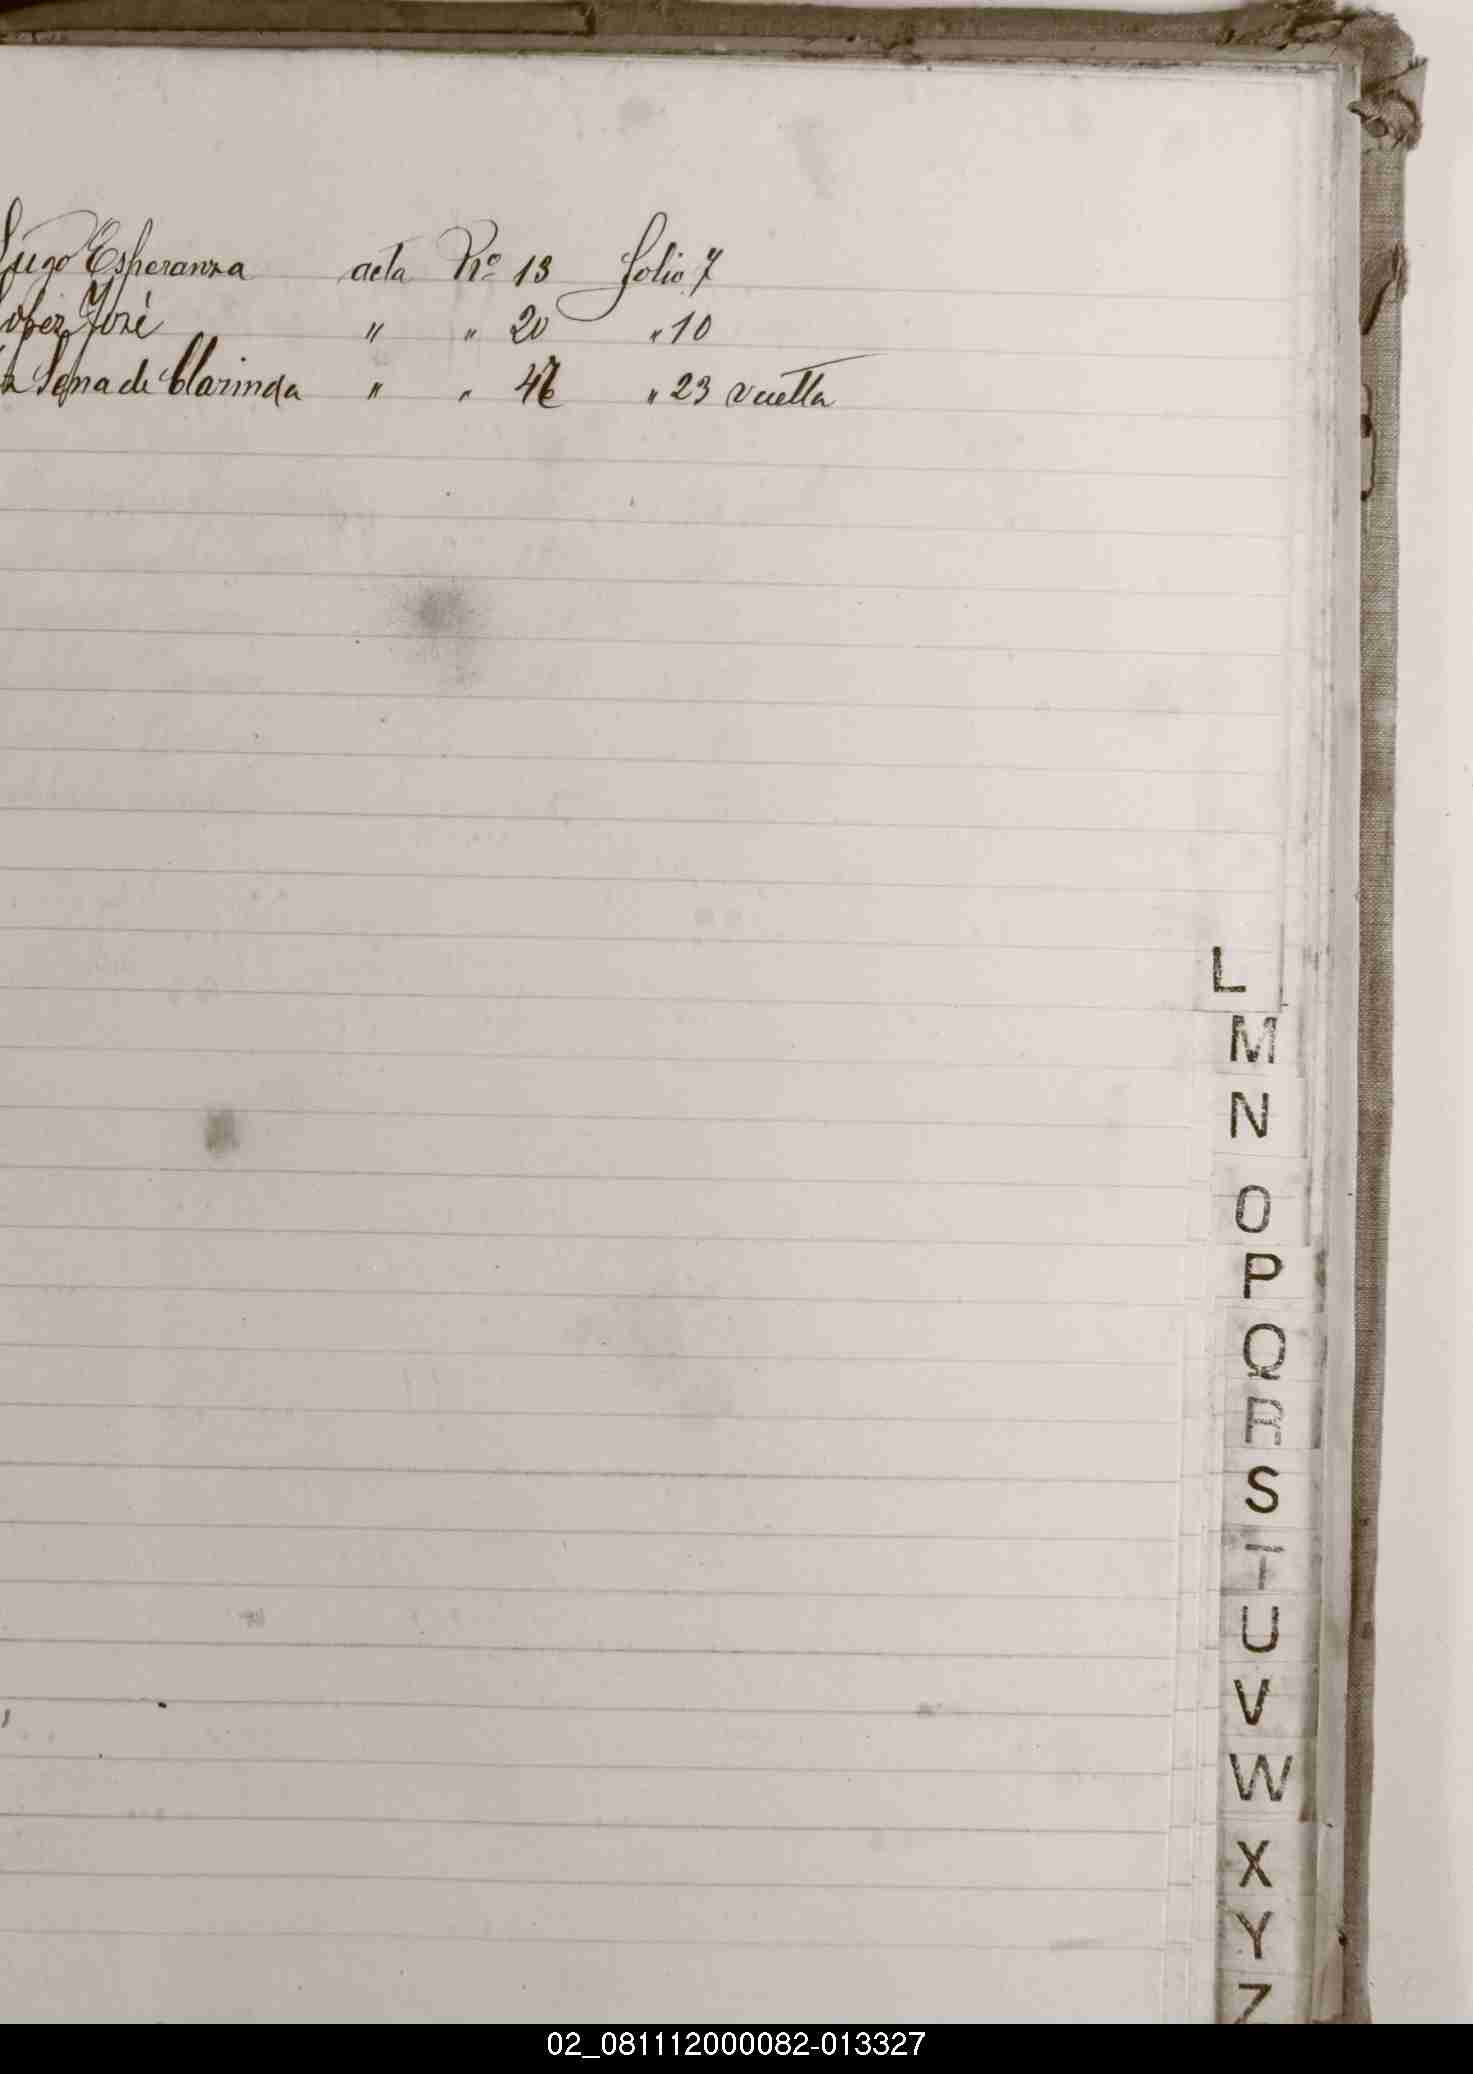 Lugo Esperanza acta No 13 folio 7
Lopez José " " 20 " 10
de Clarinda " " 46 " 23 vuelta
L
M
N
O
P
Q
R
S
T
U
V
W
X
Y
Z
02_081112000082-013327